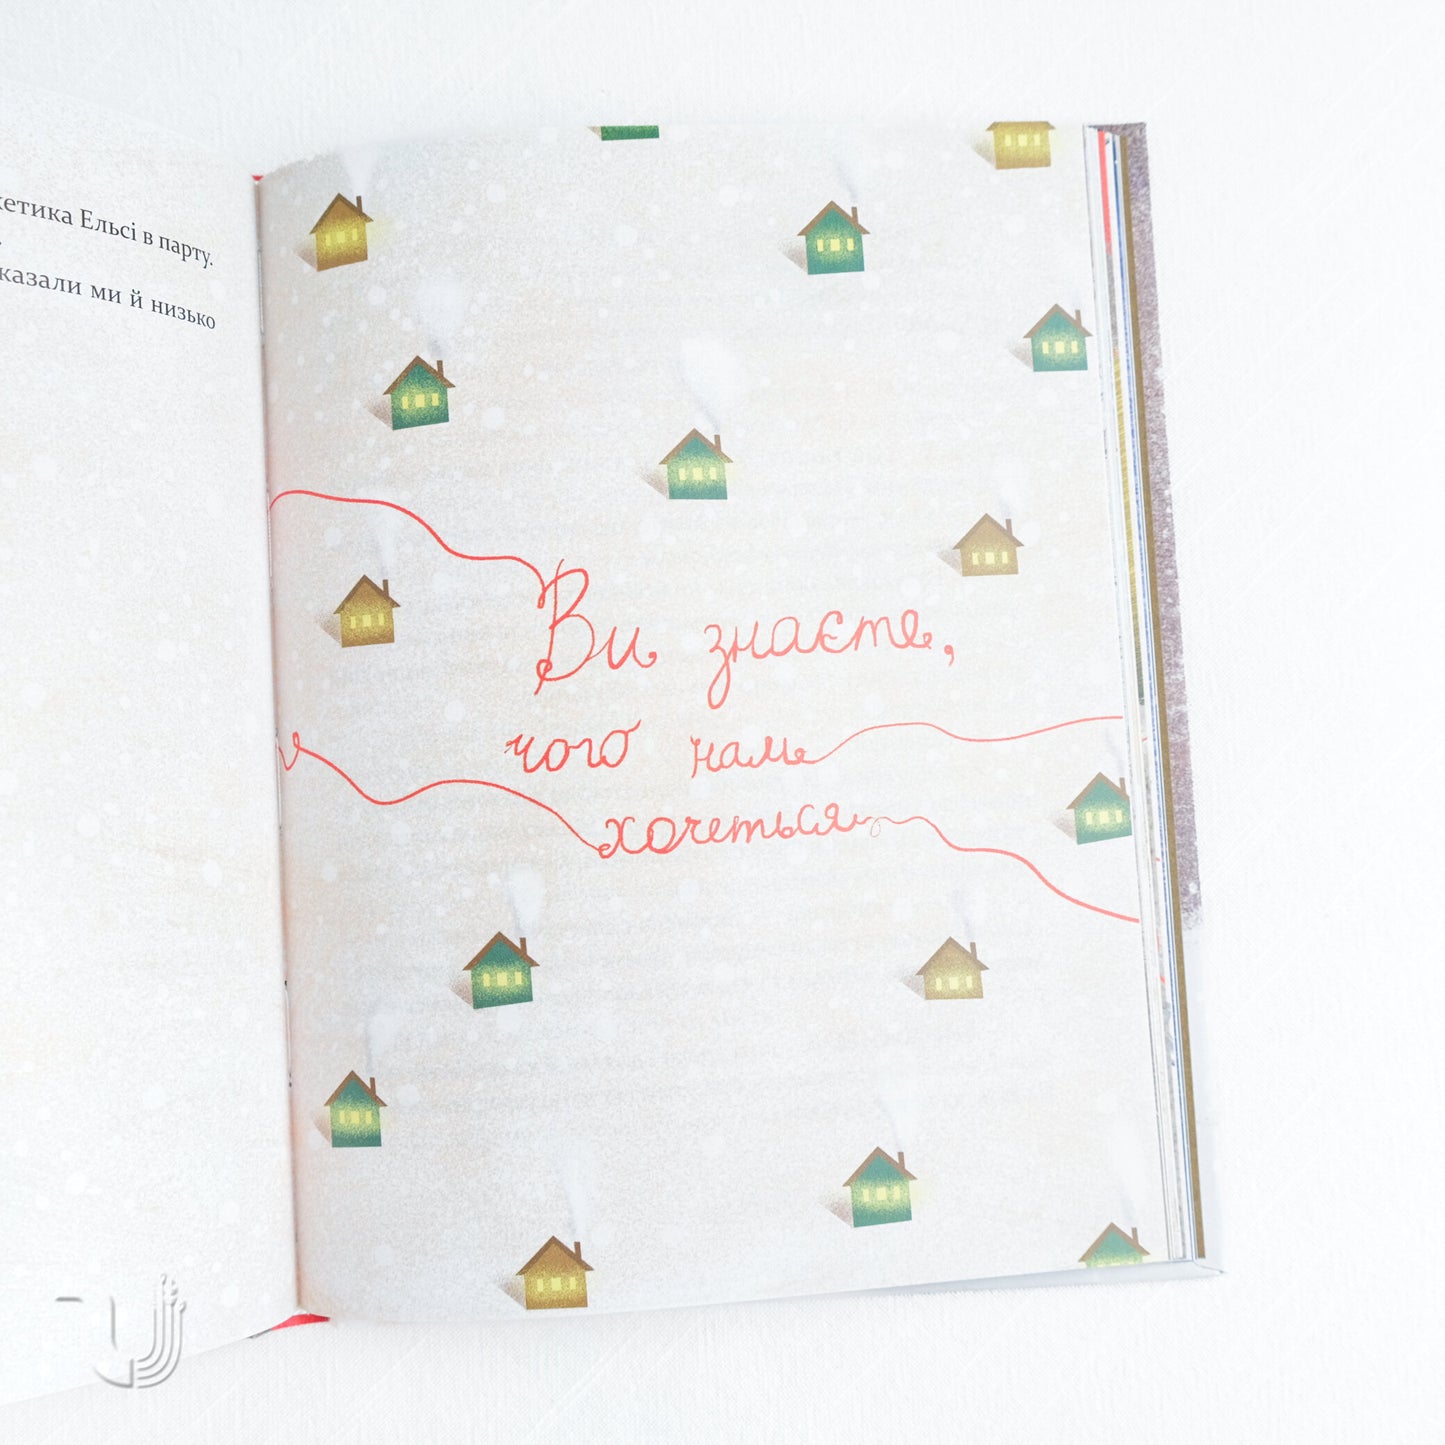 Ельсі в парту.
казали ми й низько
Ви знаєте,
чого нам
хочеться